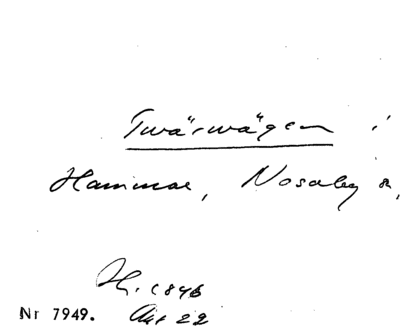 "Twärwägen" i
Hammar, Nosaby sn,
H. 1846
Nr 7949. Akt 22